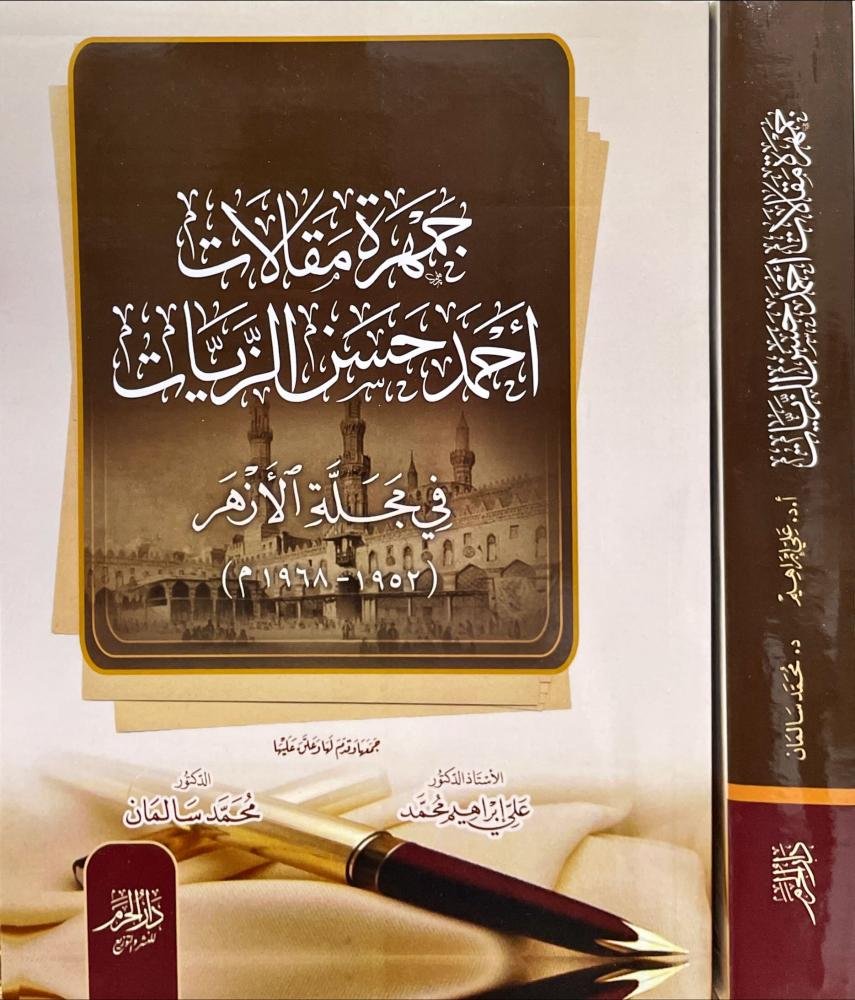 جَمْهَرَة مَقَالَات
أَحْمَد حَسَن الزَّيَّات
فِي مَجَلَّةِ الأَزْهَر
(١٩٥٢ - ١٩٦٨ م)
جمعها وقدم لها وعلق عليها
الأستاذ الدكتور
علي إبراهيم محمد
الدكتور
محمد سالمان
دار الحرم
للنشر والتوزيع
جمهرة مقالات أحمد حسن الزيات
أ.د. علي إبراهيم
د. محمد سالمان
دار الحرم